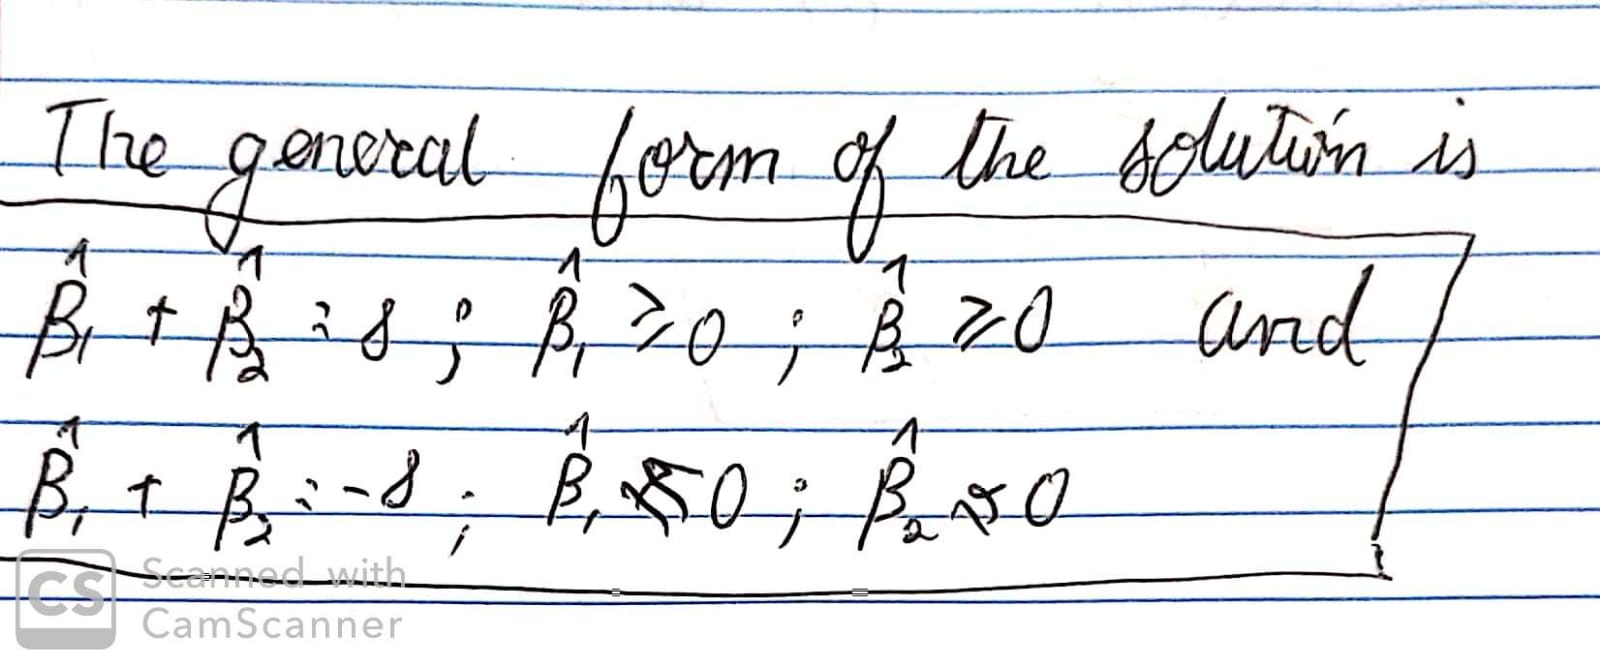 The general form of the solution is
β̂₁ + β̂₂ = s ; β̂₁ ≥ 0 ; β̂₂ ≥ 0 and
β̂₁ + β̂₂ = -s ; β̂₁ ≤ 0 ; β̂₂ ≤ 0
CS Scanned with
CamScanner